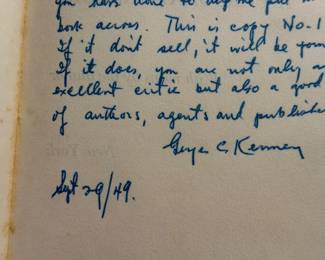 you have done to help me put
book across. This is copy No. 1
If it dont sell, it will be your
If it does, you are not only an
excellent critic but also a good
of authors, agents and publishe
George C Kenney
Sept 29/49.
New York